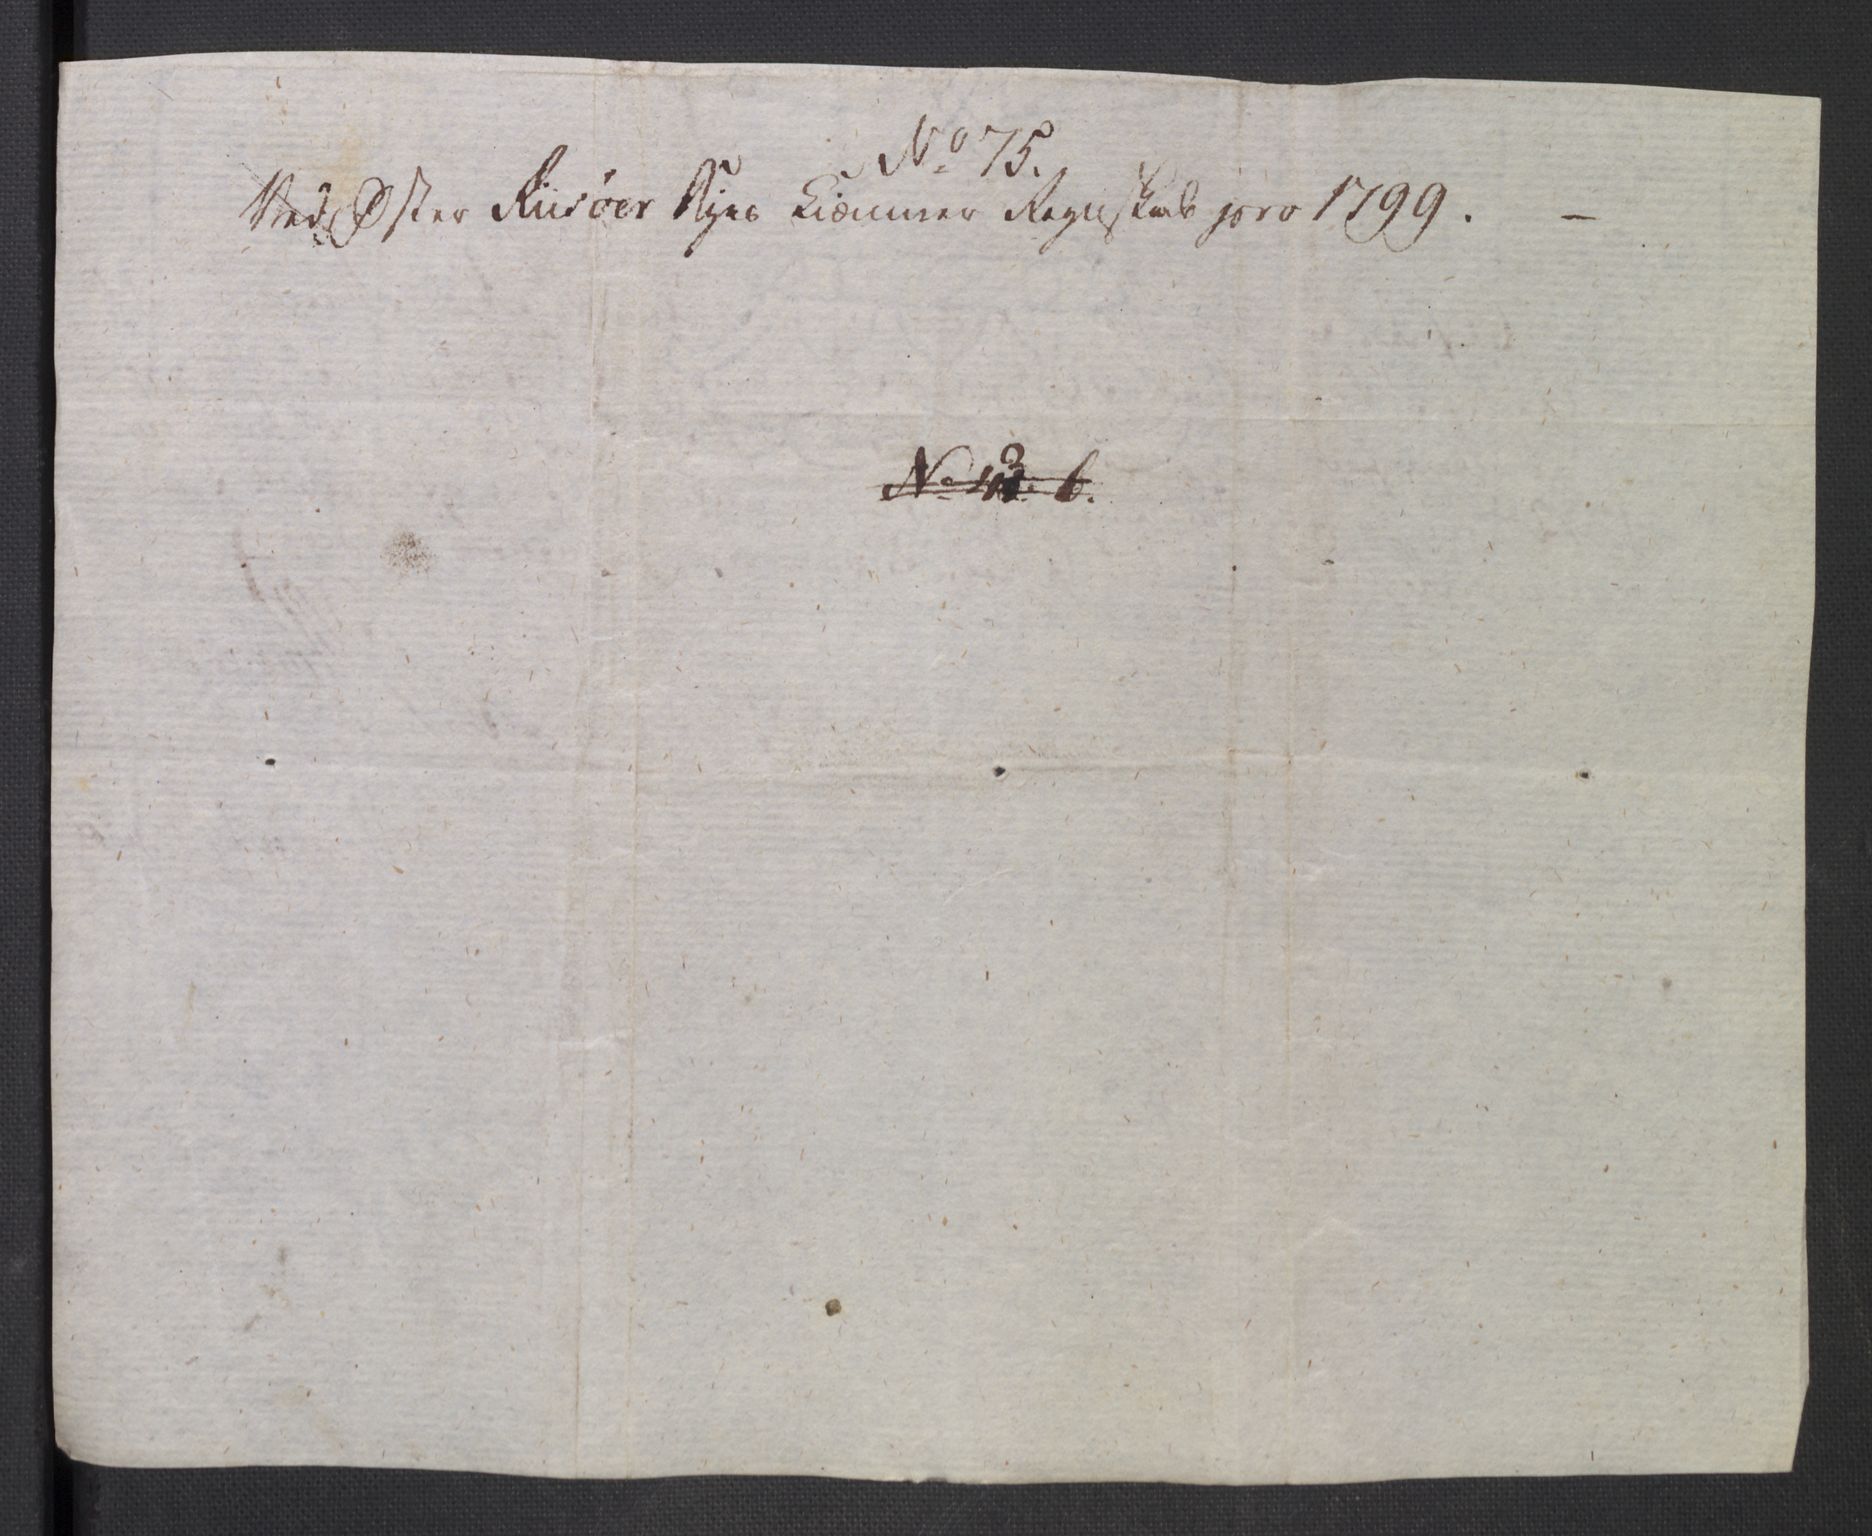 No 75.
Ved Øster Riisöer Byes Kiæmner Regnskab pro 1799. —
No 13. b.